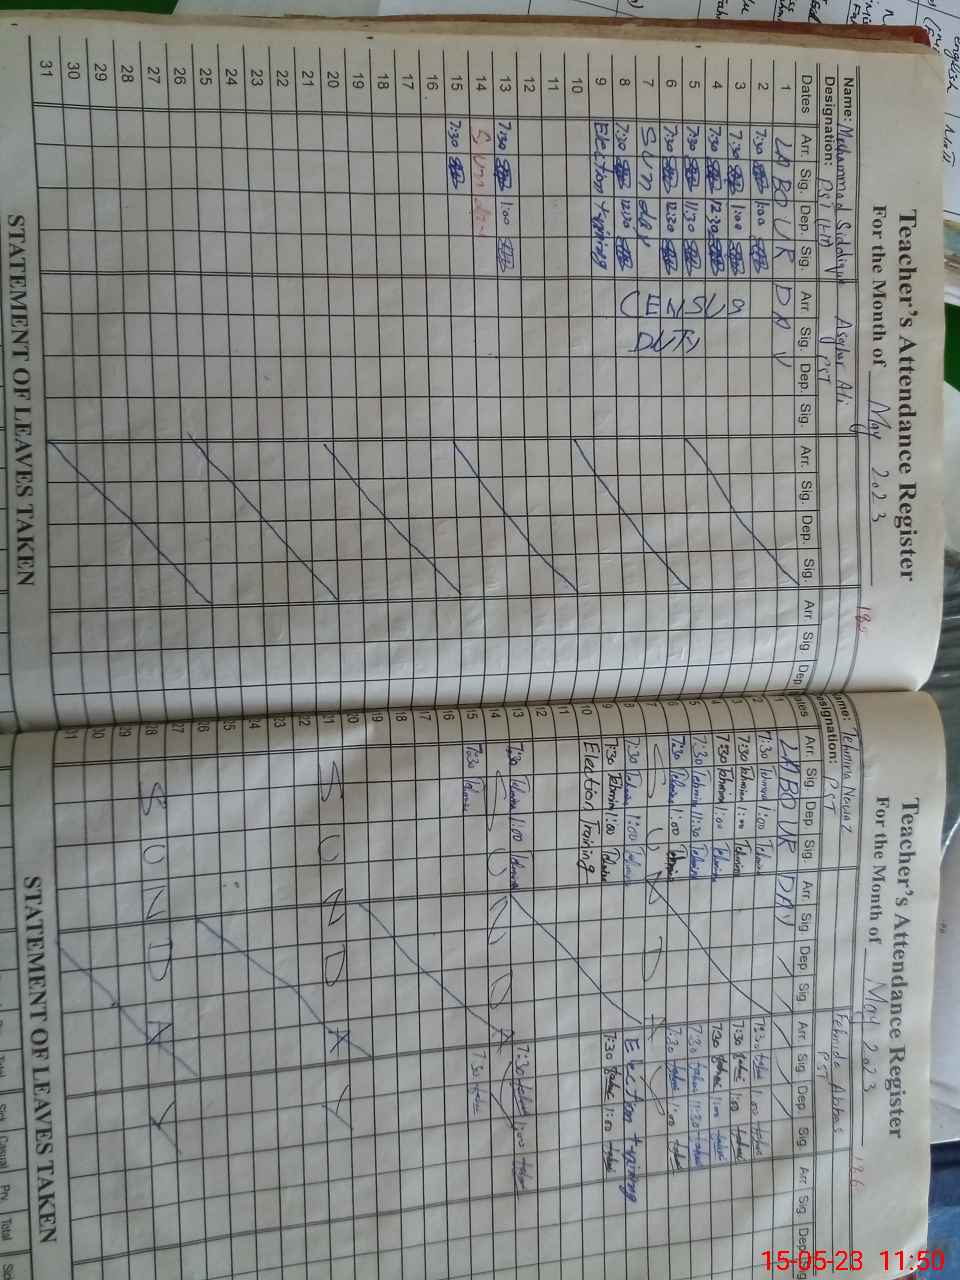 Teacher's Attendance Register
For the Month of May 2023
185
Name: Mohammad Siddique Asghar Ali
Designation: PST PST
Dates Arr. Sig. Dep. Sig. Arr. Sig. Dep. Sig. Arr. Sig. Dep. Sig. Arr Sig Dep
1 LABOUR DAY
2 7:30 1:00
3 7:30 1:00
4 7:30 12:30
5 7:30 11:30
6 7:30 12:30
7 Sunday
8 7:30 12:30
9 Election training
10
11
12
13 7:30 1:00
14 Sunday
15 7:30
16
17
18
19
20
21
22
23
24
25
26
27
28
29
30
31
DUTY
STATEMENT OF LEAVES TAKEN
Teacher's Attendance Register
For the Month of May 2023
186
Name: Tehmina Nawaz Fehmida Abbas
Designation: PST PST
Dates Arr. Sig. Dep. Sig. Arr Sig Dep. Sig. Arr. Sig. Dep Sig. Arr Sig Dep. Sig
1 LABOUR DAY
2 7:30 Tehmina 1:00 Tehmina 7:30 1:00
3 7:30 Tehmina 1:00 Tehmina 7:30 1:00
4 7:30 Tehmina 1:00 Tehmina 7:30 1:00
5 7:30 Tehmina 11:30 Tehmina 7:30 11:30
6 7:30 Tehmina 1:00 Tehmina 7:30 1:00
7 SUNDAY
8 7:30 Tehmina 1:00 Tehmina Election training
9 7:30 Tehmina 1:00 Tehmina 7:30 1:00
10 Election Training
11
12
13 7:30 Tehmina 1:00 Tehmina 7:30 1:00
14 SUNDAY
15 7:30 Tehmina 7:30
16
17
18
19
20
21 SUNDAY
22
23
24
25
26
27
28 SUNDAY
29
30
31
STATEMENT OF LEAVES TAKEN
Total Sick Casual Prv. Total Sick
15-05-23 11:50